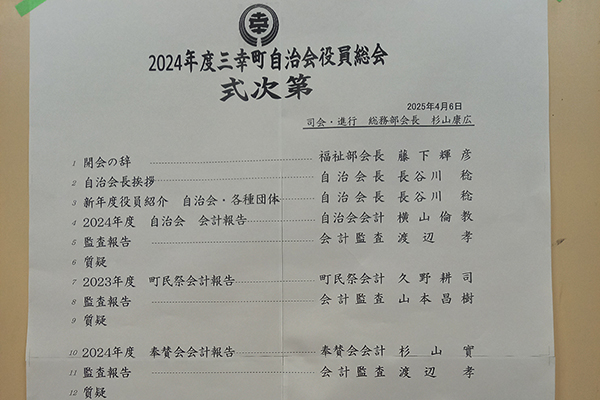 幸
2024年度三幸町自治会役員総会
式次第
2025年4月6日
司会・進行 総務部会長 杉山康広
1 開会の辞 福祉部会長 藤下輝彦
2 自治会長挨拶 自治会長 長谷川 稔
3 新年度役員紹介 自治会・各種団体 自治会長 長谷川 稔
4 2024年度 自治会 会計報告 自治会会計 横山倫教
5 監査報告 会計監査 渡辺 孝
6 質疑
7 2023年度 町民祭会計報告 町民祭会計 久野耕司
8 監査報告 会計監査 山本昌樹
9 質疑
10 2024年度 奉賛会会計報告 奉賛会会計 杉山 實
11 監査報告 会計監査 渡辺 孝
12 質疑